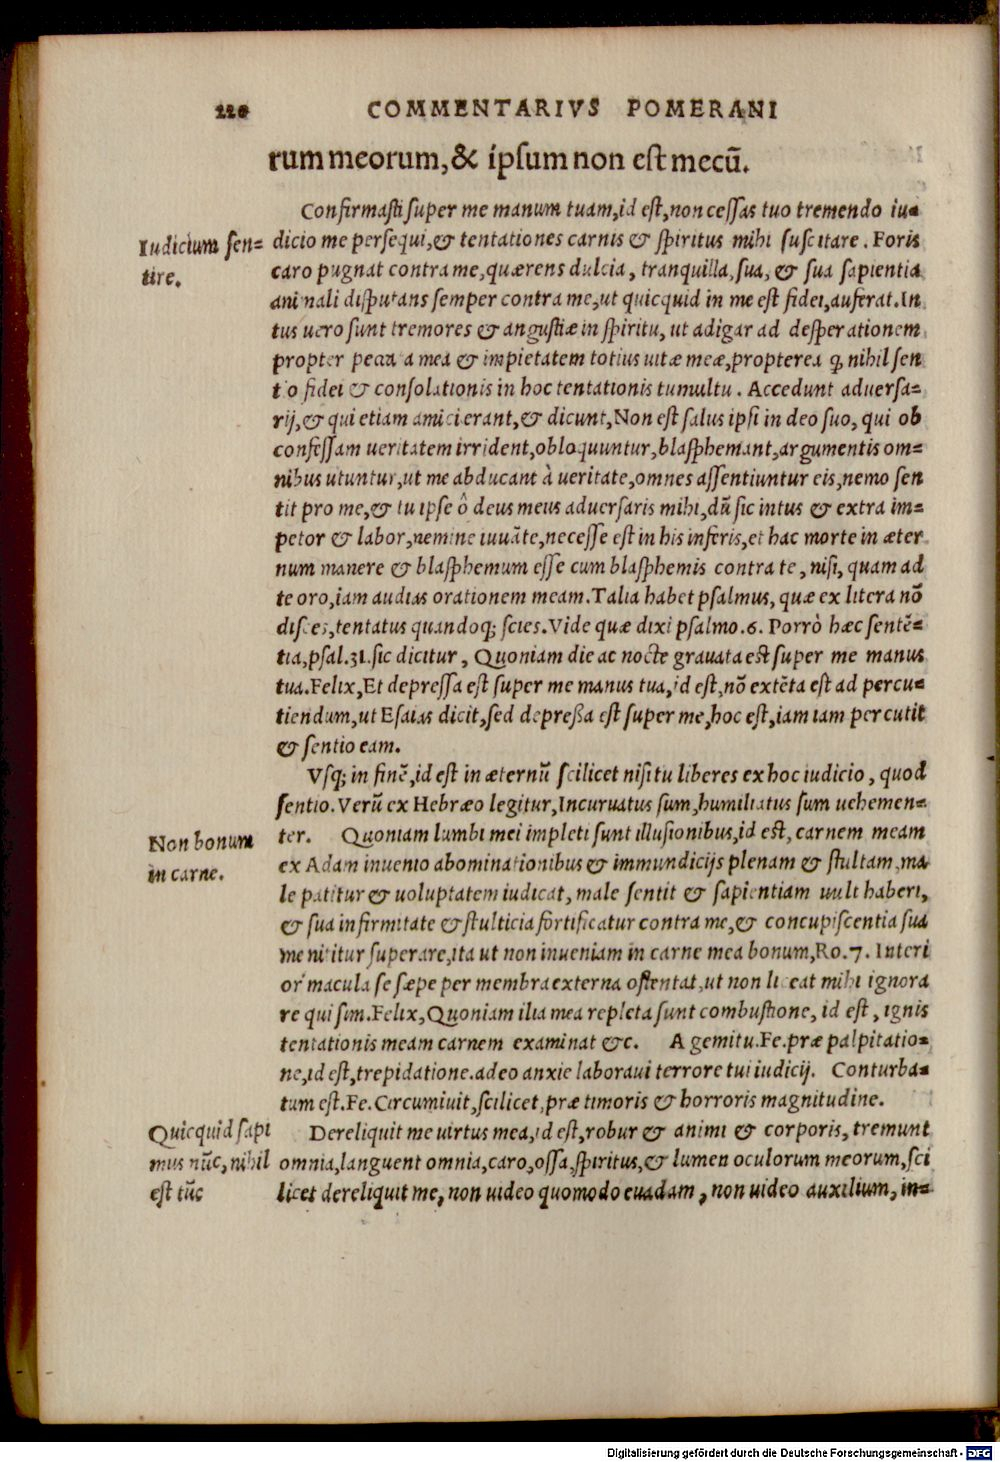 220 COMMENTARIVS POMERANI
rum meorum, & ipsum non est mecū.
Confirmasti super me manum tuam, id est, non cessas tuo tremendo iu=
Iudicium sen=
tire.
dicio me persequi, & tentationes carnis & spiritus mihi suscitare. Foris
caro pugnat contra me, quærens dulcia, tranquilla, sua, & sua sapientia
animali disputans semper contra me, ut quicquid in me est fidei, auferat. In
tus uero sunt tremores & angustiæ in spiritu, ut adigar ad desperationem
propter peccata mea & impietatem totius uitæ meæ, propterea ꝙ nihil sen
tio fidei & consolationis in hoc tentationis tumultu. Accedunt aduersa=
rij, & qui etiam amici erant, & dicunt, Non est salus ipsi in deo suo, qui ob
confessam ueritatem irrident, obloquuntur, blasphemant, argumentis om=
nibus utuntur, ut me abducant à ueritate, omnes assentiuntur eis, nemo sen
tit pro me, & tu ipse ô deus meus aduersaris mihi, dū sic intus & extra im=
petor & labor, nemine iuuāte, necesse est in his inferis, et hac morte in æter
num manere & blasphemum esse cum blasphemis contra te, nisi, quam ad
te oro, iam audias orationem meam. Talia habet psalmus, quæ ex litera nō
disces, tentatus quandoq; scies. Vide quæ dixi psalmo .6. Porrò hæc sentē=
tia, psal.31. sic dicitur, Quoniam die ac nocte grauata est super me manus
tua. Felix, Et depressa est super me manus tua, id est, nō extēta est ad percu=
tiendum, ut Esaias dicit, sed depreßa est super me, hoc est, iam iam percutit
& sentio eam.
Vsq; in finē, id est in æternū scilicet nisi tu liberes ex hoc iudicio, quod
sentio. Verū ex Hebræo legitur, Incuruatus sum, humiliatus sum uehemen=
Non bonum
in carne.
ter. Quoniam lumbi mei impleti sunt illusionibus, id est, carnem meam
ex Adam inuenio abominationibus & immundicijs plenam & stultam, ma
le patitur & uoluptatem iudicat, male sentit & sapientiam uult haberi,
& sua infirmitate & stulticia fortificatur contra me, & concupiscentia sua
me nititur superare, ita ut non inueniam in carne mea bonum, Ro.7. Interi
or macula se sæpe per membra externa ostentat, ut non liceat mihi ignora
re qui sim. Felix, Quoniam ilia mea repleta sunt combustione, id est, ignis
tentationis meam carnem examinat &c. A gemitu. Fe. præ palpitatio=
ne, id est, trepidatione. adeo anxie laboraui terrore tui iudicij. Conturba=
tum est. Fe. Circumiuit, scilicet, præ timoris & horroris magnitudine.
Quicquid sapi
mus nūc, nihil
est tūc
Dereliquit me uirtus mea, id est, robur & animi & corporis, tremunt
omnia, languent omnia, caro, ossa, spiritus, & lumen oculorum meorum, sci
licet dereliquit me, non uideo quomodo euadam, non uideo auxilium, in=
Digitalisierung gefördert durch die Deutsche Forschungsgemeinschaft - DFG